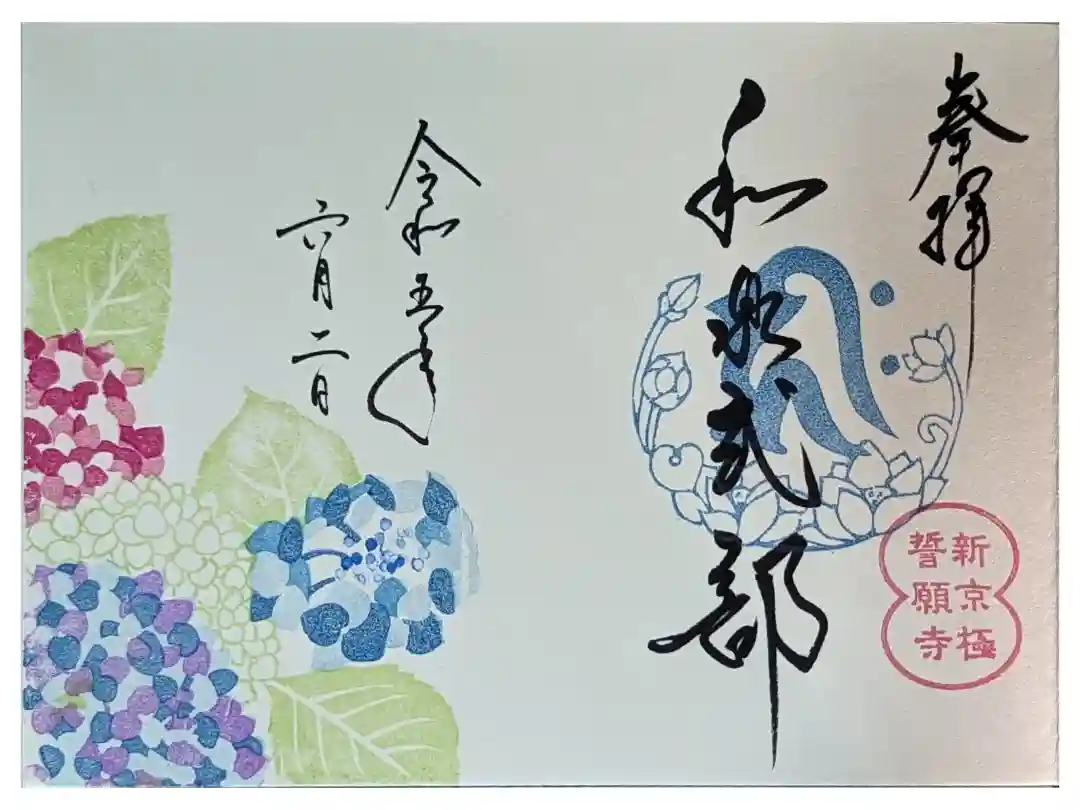 奉拝
和泉式部
新京極
誓願寺
令和五年
六月二日